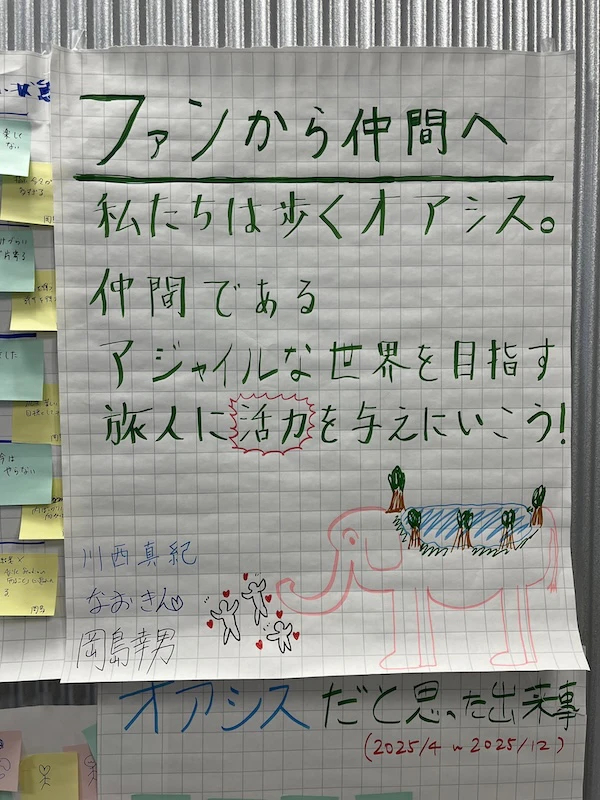 ファンから仲間へ
私たちは歩くオアシス。
仲間である
アジャイルな世界を目指す
旅人に活力を与えにいこう!
川西真紀
なおきん♡
岡島幸男
オアシスだと思った出来事
(2025/4 〜 2025/12)
楽しく
ない
今は
やらない